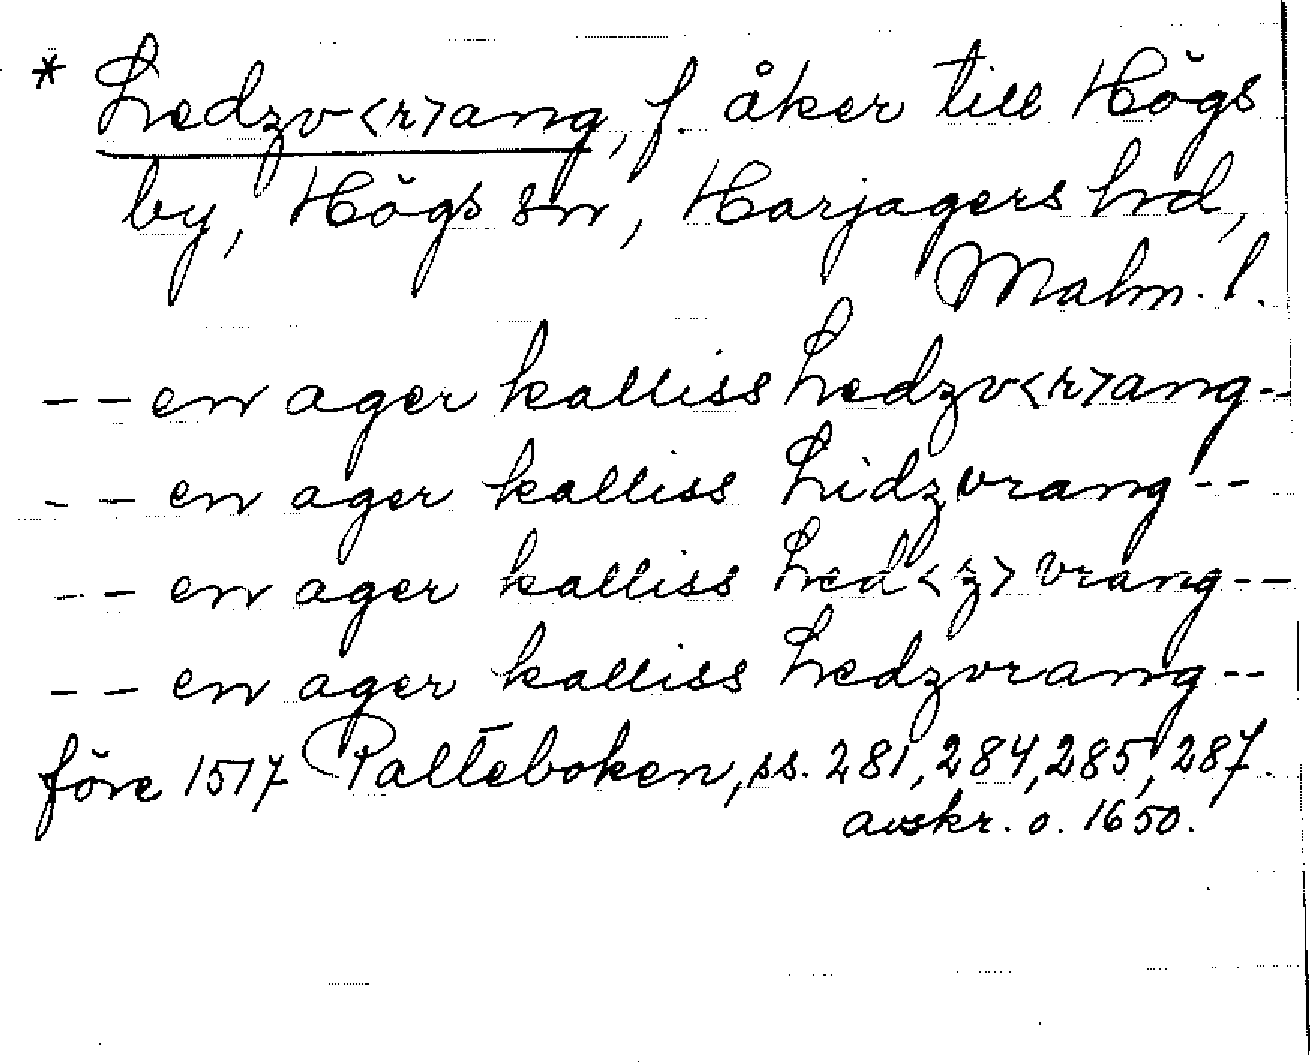 * Ledzv<r>ang, f. åker till Högs
by, Högs sn, Harjagers hd,
Malm. l.
-- en ager kalliss Ledzv<r>ang --
-- en ager kalliss Lidzvrang --
-- en ager kalliss Led<z>vrang --
-- en ager kalliss Ledzvrang --
före 1517 Palteboken, ss. 281, 284, 285, 287.
avskr. o. 1650.